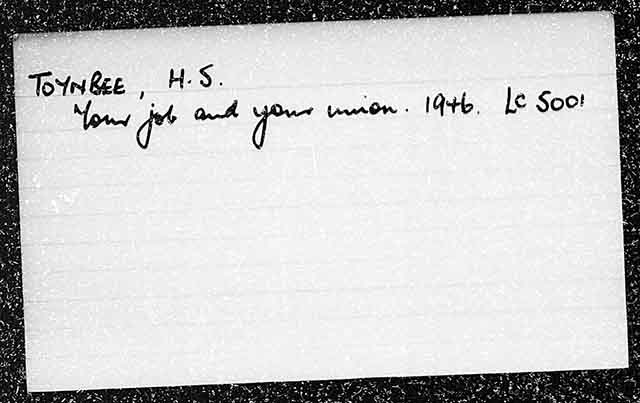 TOYNBEE, H.S.
Your job and your union. 1946. LC 5001